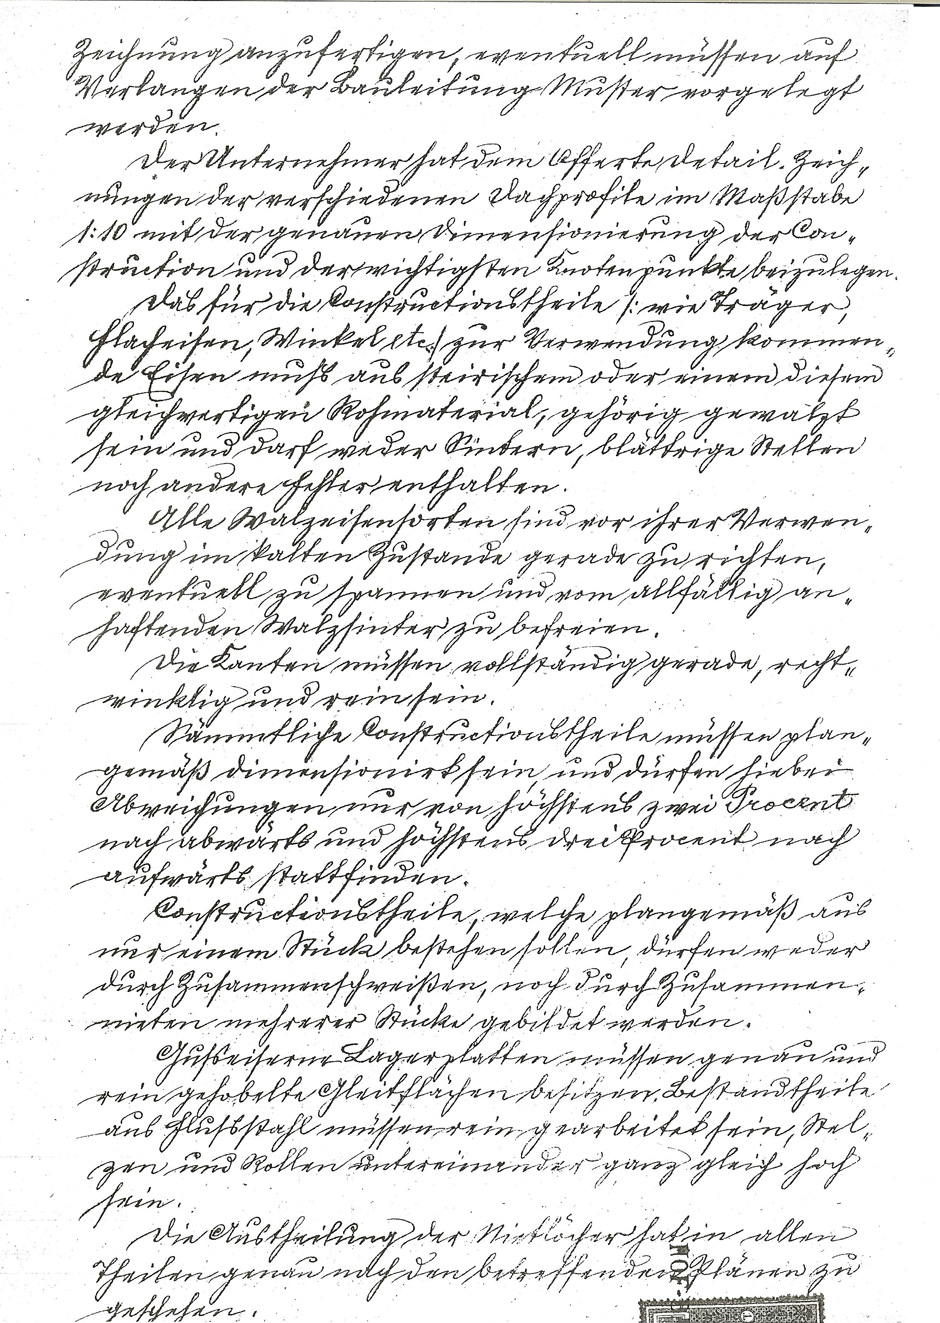 Zeichnung anzufertigen, eventuell müssen auf
Verlangen der Bauleitung Muster vorgelegt
werden.
Der Unternehmer hat dem Offerte Detail-Zeich-
nungen der verschiedenen Dachprofile im Maßstabe
1:10 mit der genauen Dimensionierung der Con-
struction und der wichtigsten Knotenpunkte beizulegen.
Das für die Constructionstheile /: wie Träger,
Flacheisen, Winkel etc./ zur Verwendung kommen-
de Eisen muß aus steirischem oder einem diesem
gleichwertigen Rohmaterial, gehörig gewalzt
sein und darf weder Sintern, blättrige Stellen
noch andere Fehler enthalten.
Alle Walzeisensorten sind vor ihrer Verwen-
dung im kalten Zustande gerade zu richten,
eventuell zu spannen und vom allfällig an-
haftenden Walzsinter zu befreien.
Die Kanten müssen vollständig gerade, recht-
winklig und rein sein.
Sämmtliche Constructionstheile müssen plan-
gemäß dimensionirt sein, und dürfen hiebei
Abweichungen nur von höchstens zwei Procent
nach abwärts und höchstens drei Procent nach
aufwärts stattfinden.
Constructionstheile, welche plangemäß aus
nur einem Stück bestehen sollen, dürfen weder
durch Zusammenschweißen, noch durch Zusammen-
nieten mehrerer Stücke gebildet werden.
Gußeiserne Lagerplatten müssen genau und
rein gehobelte Gleitflächen besitzen. Bestandtheile
aus Flußstahl müssen rein gearbeitet sein, Stel-
zen und Rollen untereinander ganz gleich hoch
sein.
Die Austheilung der Nietlöcher hat in allen
Theilen genau nach den betreffenden Plänen zu
geschehen.